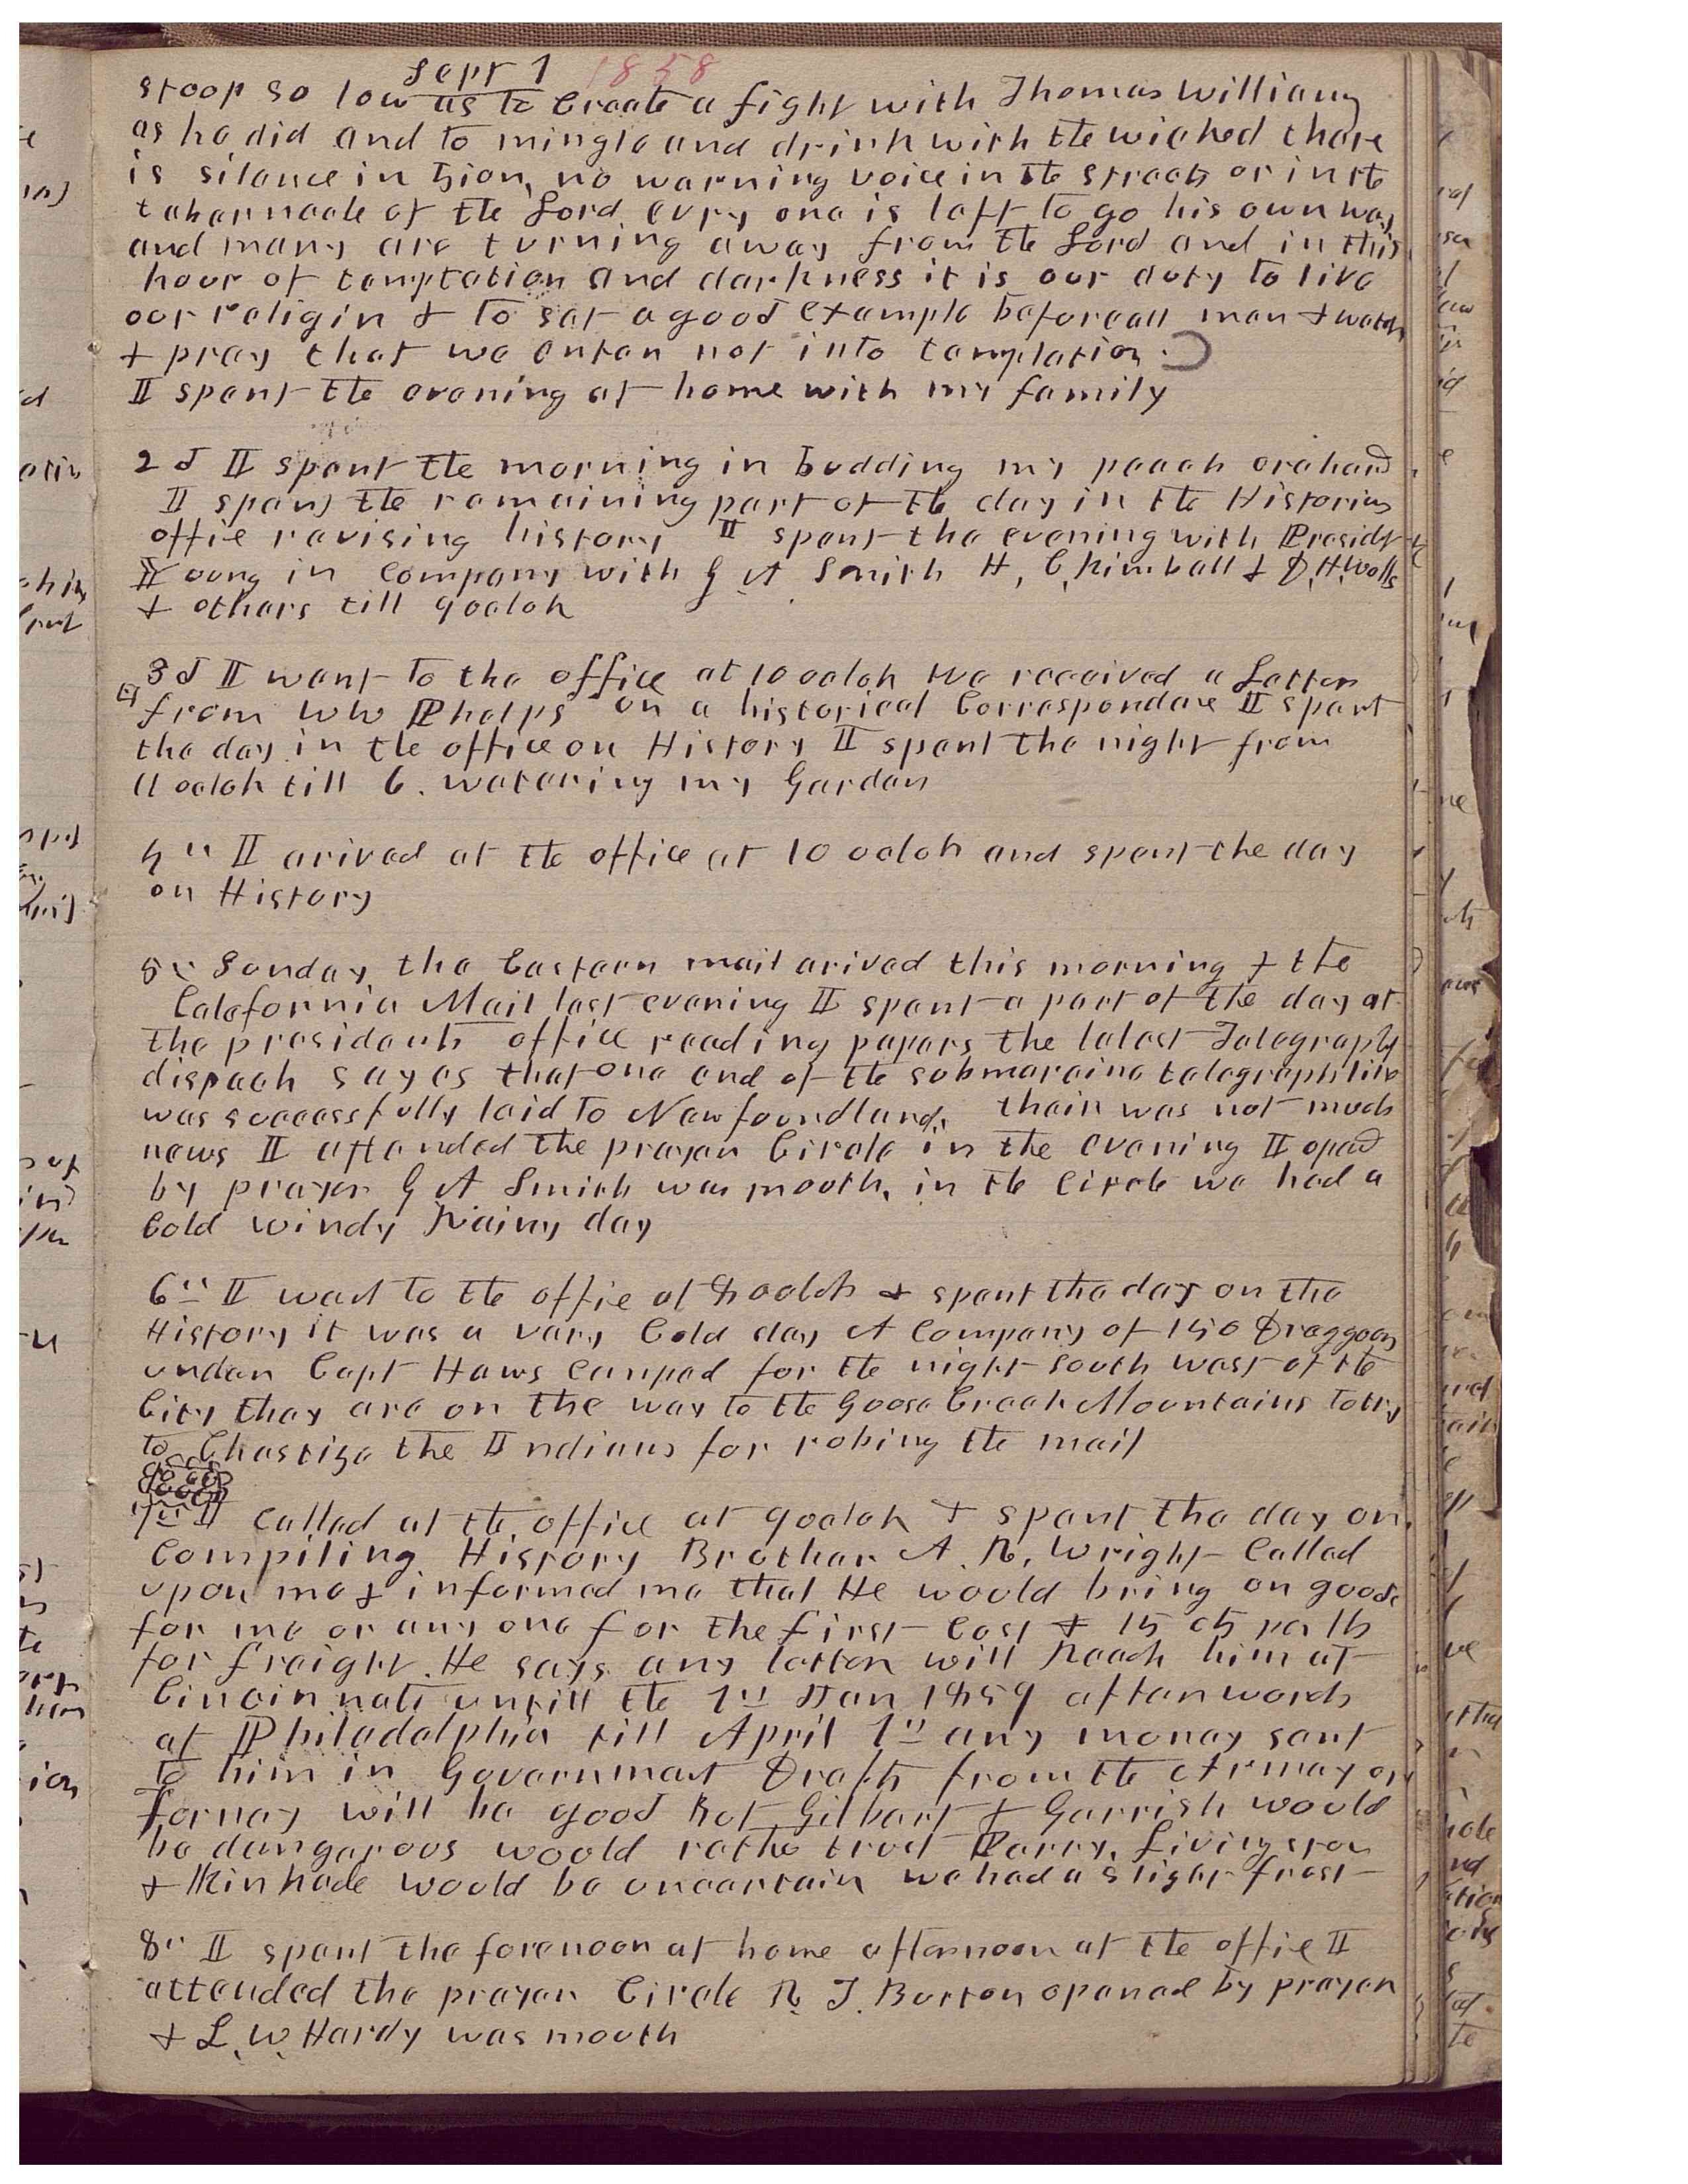 Sept 1 1858
stoop so low as to Create a fight with Thomas Williams
as he did and to mingle and drink with the wicked there
is silence in Zion, no warning voice in the streets or in the
tabernacle of the Lord evry one is left to go his own way
and many are turning away from the Lord and in this
hour of temptation and darkness it is our duty to live
our religin & to set a good example before all men & watch
& pray that we enter not into temptation.
I spent the evening at home with my family
2d I spent the morning in budding my peach orchard
I spent the remaining part of the day in the Historians
offie revising history I spent the evening with Presidt
Young in company with G A Smith H, C, Kimball & D, H, Wells
& others till 9 oclok
3d I went to the office at 10 oclok We received a Letter
from WW Phelps on a historical Correspondance I spent
the day in the office on History I spent the night from
11 oclok till 6. watering my Garden
4th I arived at the office at 10 oclok and spent the day
on History
5th Sunday the Eastern mail arived this morning & the
Calefornia Mail last evening I spent a part of the day at
the presidents office reading papers the latest Telegraphy
dispach sayes that one end of the submareine telegraph line
was successfully laid to Newfoundland, their was not much
news I attended the prayer Circle in the evening I oped
by prayer G A Smith was mouth, in the Circle we had a
Cold windy Rainy day
6th I went to the offie at 8 oclok & spent the day on the
History it was a very Cold day A Company of 150 Draggoons
under Capt Haws camped for the night South west of the
City they are on the way to the Goose Creek Mountains to try
to Chastize the Indians for robing the mail
7th I called at the office at 9 oclok & spent the day on
Compiling History Brother A. R, Wright Called
upon me & informed me that He would bring on goods
for me or any one for the first Cost & 15 cts per lb
for freight. He says any letter will Reach him at
Cincinnati untill the 1st Jan 1859 afterwords
at Philadelphia till April 1st any money sent
to him in Government Drafts from the Army or
Forney will be good But Gilbert & Gerrish would
be dangerous would rathe trust Perry, Livingston
& Kinkade would be uncertain we had a slight frost
8th I spent the forenoon at home afternoon at the offie I
attended the prayer Circle R. T. Burton opened by prayer
& L, W, Hardy was mouth